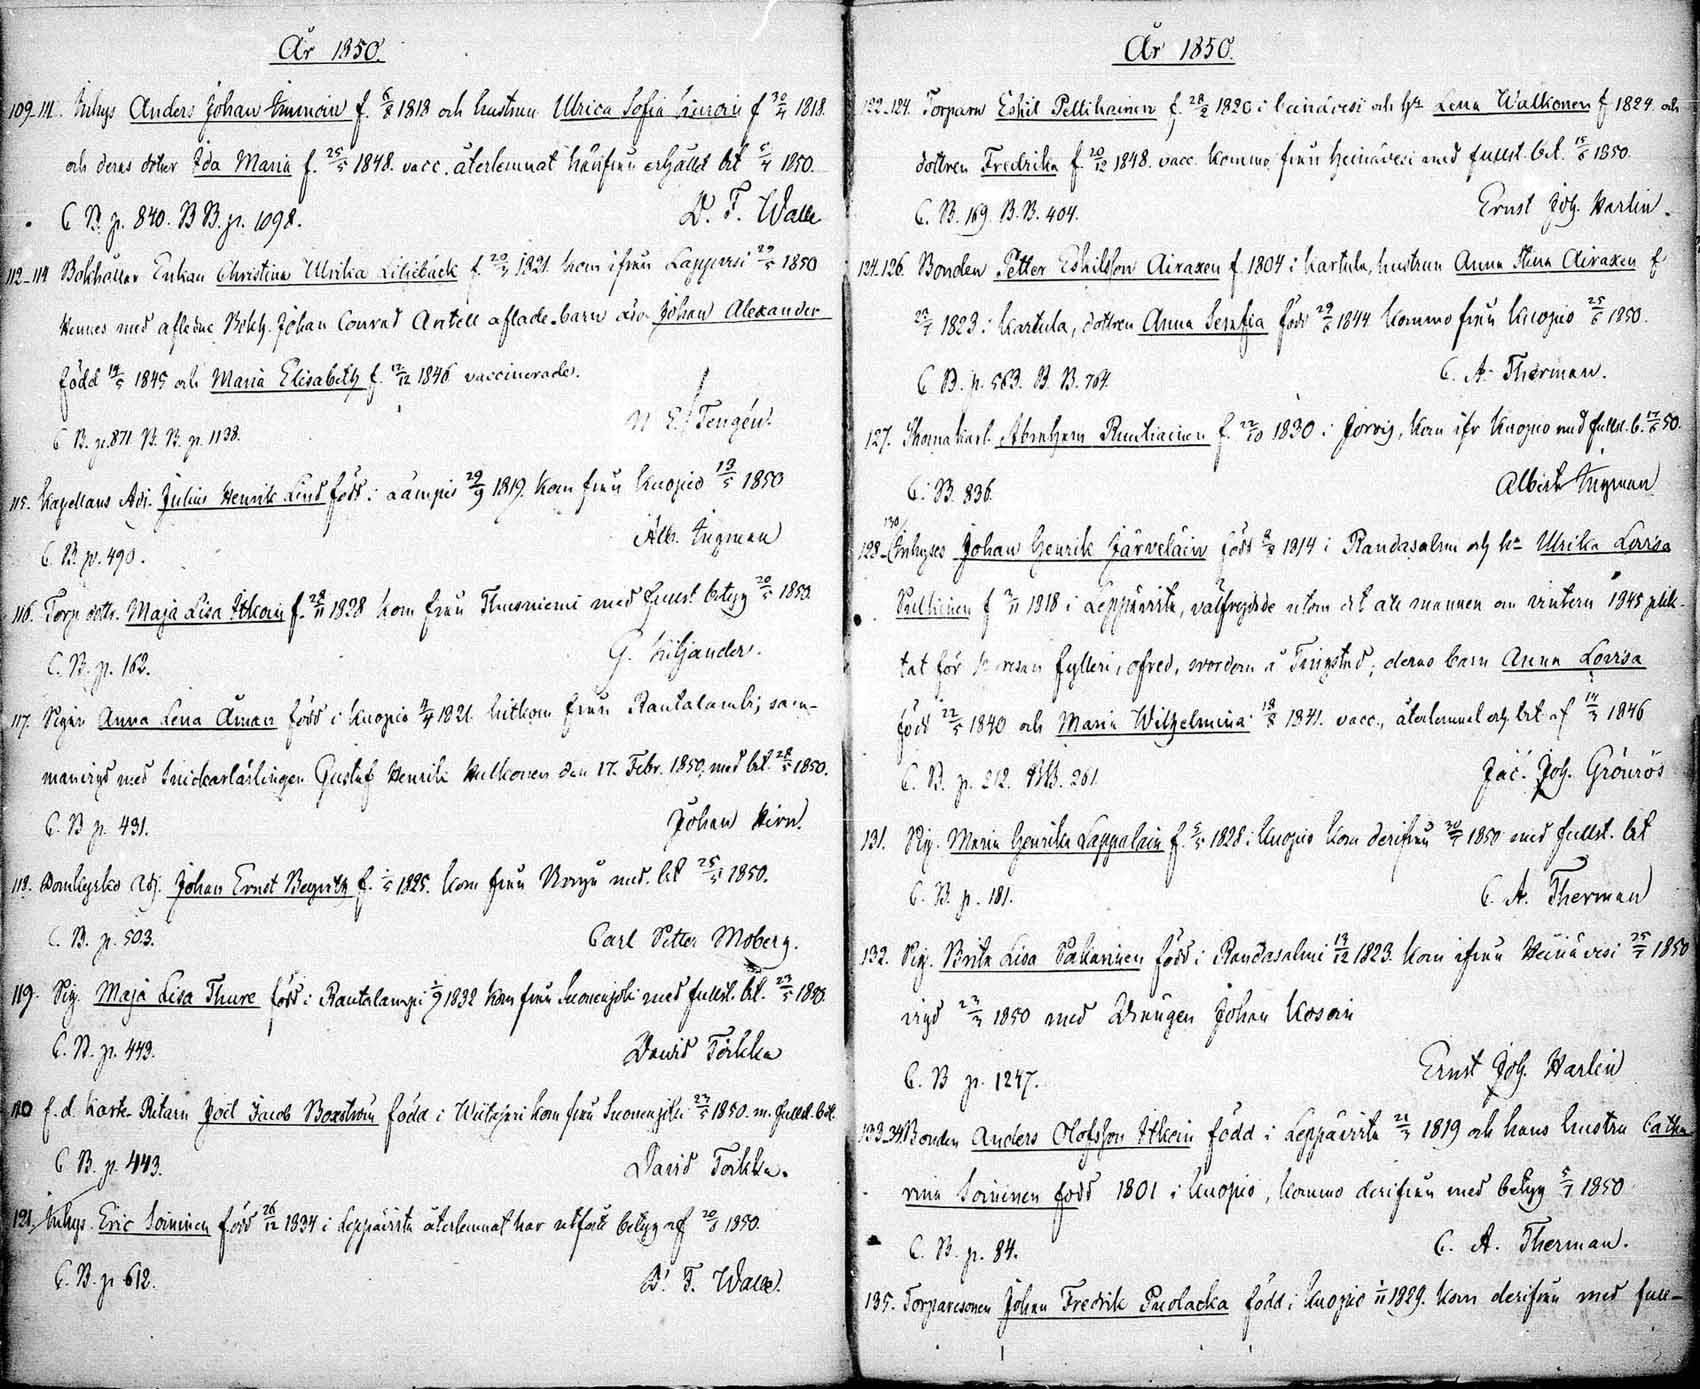 År 1850.
109-111. Inhys Anders Johan Immoin f. 6/8 1818 och hustrun Ulrica Sofia f 30/4 1818.
och deras dotter Ida Maria f. 25/5 1848. vacc. återlemnat härifrån erhållet bet 5/4 1850.
C B. p. 840. B B. p. 1098. D. F. Walle
112-114 Bokhållar Enkan Christina Ulrika Liljebäck f. 20/3 1821. kom ifrån Lappvesi 29/5 1850
Hennes med aflidne Bokh. Johan Conrad Antell aflade barn äro Johan Alexander
född 14/5 1845 och Maria Elisabeth f. 12/12 1846 vaccinerade.
C B. p. 871 B. B. p. 1138. N E. Tengén.
115. Kapellans Adj. Julius Henrik Lind född i Lampis 29/9 1819. kom från Kuopio 13/5 1850
C. B. p. 490. Alb. Ingman
116. Torp. dottr. Maja Lisa Itkoin f. 28/11 1828 kom från Thusniemi med fullst. betyg 20/5 1850.
C. B. p. 162. G. Kiljander.
117. Pigan Anna Lena Åman född i Kuopio 9/4 1821. hitkom från Rautalambi, sam-
manvigd med Snickarlärlingen Gustaf Henrik Hulkonen den 17. Febr. 1850. med bet. 28/5 1850.
C. B p. 431. Johan Hirn.
118. Domkyrko Adj. Johan Ernst Begvitz f. 1/5 1825. kom från Borgå med. bet 25/5 1850.
C. B. p. 503. Carl Petter Moberg.
119. Pig. Maja Lisa Thure född i Rautalampi 1/9 1832 kom från Suonenjoki med fullst. bet. 23/5 1850.
C. B. p. 443. David Törkka
120 f. d. Karte-Ritarn Joël Jacob Boxström född i Wiitajervi kom från Suonenjoki 23/5 1850. m. fullst. bet.
C B. p. 443. David Torkka.
121. Inhys. Eric Soininen född 26/12 1834 i Leppävirta återlemnat har utfått betyg af 20/5 1850.
C. B. p 612. D. F. Walle.
År 1850.
122-124. Torparn Eskil Pellikainen f. 28/2 1820 i Heinävesi och hu Lena Walkonen f 1824. och
dottren Fredrika f. 20/12 1848. vacc. kommo från Heinävesi med fullst. bet. 15/6 1850.
C. B. 169. B. B. 404. Ernst Joh. Harlin.
124.126. Bonden Petter Eskilsson Airaxen f. 1804 i Kartula, hustrun Anna Stina Airaxen f
23/7 1823 i Kartula, dottren Anna Serafia född 29/6 1844 kommo från Kuopio 25/6 1850.
C B. p. 563. B. B. 764. C. A. Therman.
127. Abraham Runtiainen f. 22/10 1830 i Jorois, kom ifr Kuopio med fullst. b. 17/6 50.
C. B. 836. Albert Ingman
128-130 Inhyses Johan Henrik Järveläin född 8/3 1814 i Randasalmi och hu Ulrika Lovisa
Pulkinen f 3/11 1818 i Leppävirta, välfrejdade utom det att mannen om vintern 1845 plik-
tat för 1a resan fylleri, ofred, svordom å Tingstad; deras barn Anna Lovisa
född 22/5 1840 och Maria Wilhelmina 18/8 1841. vacc., återlemnat erh. bet. af 14/3 1846
C. B. p. 212. BB. 261 Jac. Joh. Grönroos
131. Pig. Maria Henrika Lappalain f. 5/5 1828 i Kuopio kom derifrån 20/7 1850 med fullst. bet
C. B. p. 181. C. A. Therman
132. Pig. Brita Lisa Pakarinen född i Randasalmi 13/12 1823. kom ifrån Heinävesi 25/7 1850
vigd 23/3 1850 med Drängen Johan Kosoin
C. B p. 1247. Ernst Joh. Harlin
133-34 Bonden Anders Olofsson Itkoin född i Leppävirta 21/3 1819 och hans hustru Catha
rina Soininen född 1801 i Kuopio, kommo derifrån med betyg 5/7 1850
C. B. p. 84. C. A. Therman.
135. Torparesonen Johan Fredrik Puolacka född i Kuopio 1/11 1829. kom derifrån med full-